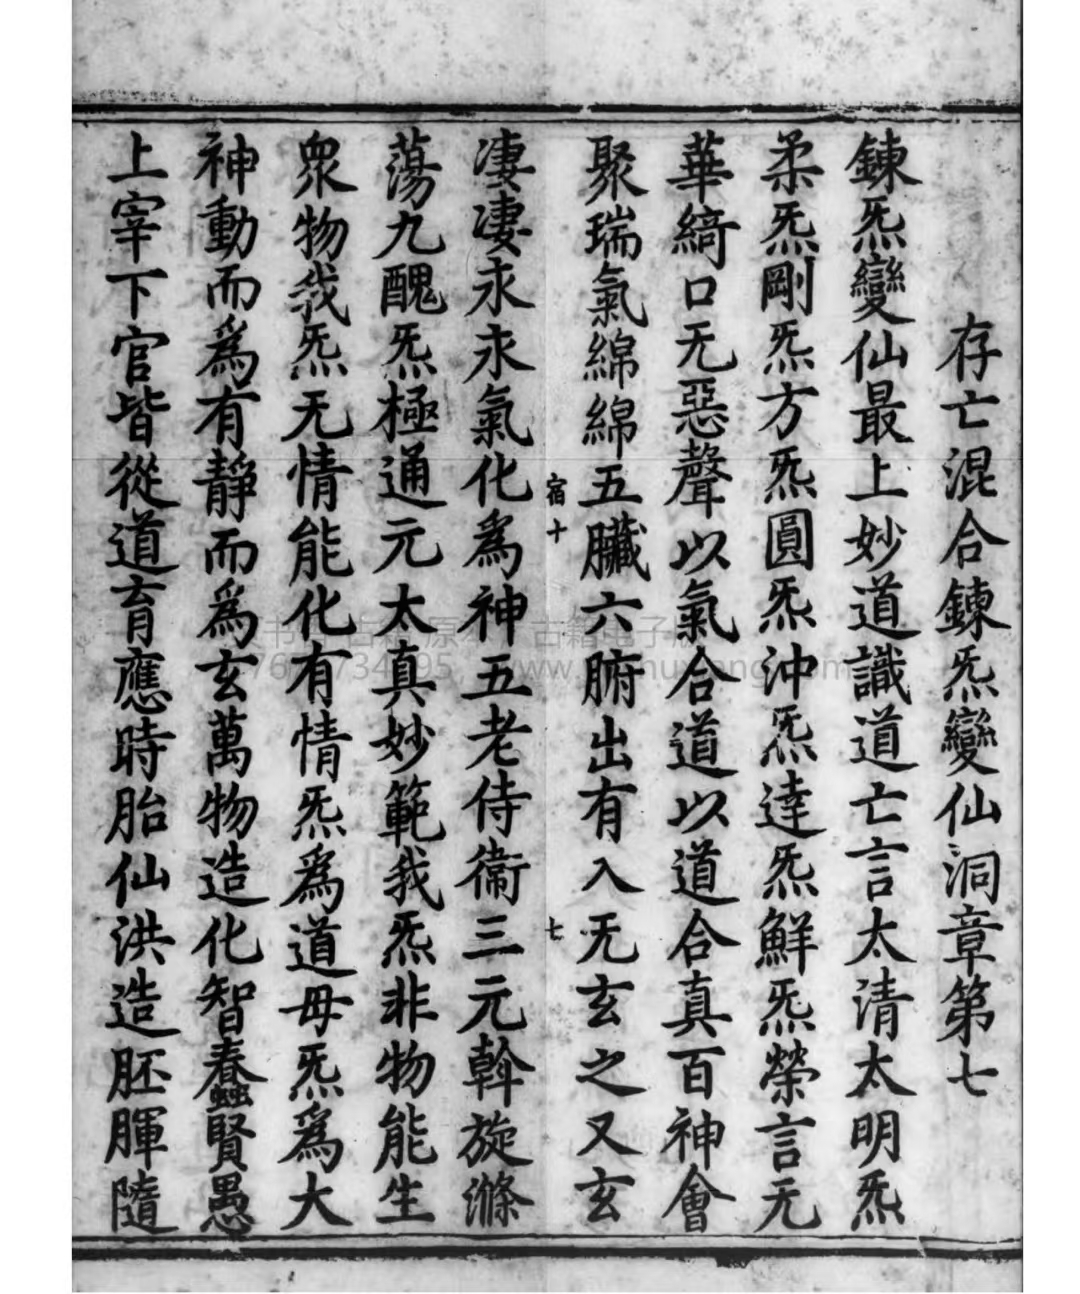 存亡混合鍊炁變仙洞章第七
鍊炁變仙最上妙道識道亡言太清太明炁
柔炁剛炁方炁圓炁沖炁達炁鮮炁榮言无
華綺口无惡聲以氣合道以道合真百神會
聚瑞氣綿綿五臟六腑出有入无玄之又玄
宿十
七
淒淒永永氣化為神五老侍衞三元斡旋滌
蕩九醜炁極通元太真妙範我炁非物能生
衆物我炁无情能化有情炁為道母炁為大
神動而為有靜而為玄萬物造化智蠢賢愚
上宰下官皆從道育應時胎仙洪造胚腪隨